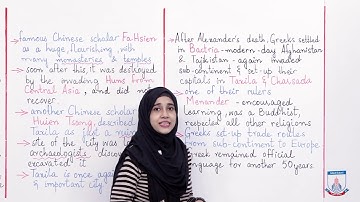 famous Chinese scholar Fa-Hsien
as a huge, flourishing, with
many monasteries & temples
soon after this, it was destroyed
by the invading Huns from
Central Asia, and did not
recover.
another Chinese scholar
Hsien Tsang, described
Taxila as just a
site of the city was
archaeologists
excavated it
Taxila is once again
& important city
After Alexander's death, Greeks settled
in Bactria - modern-day Afghanistan
& Tajikistan - again invaded
sub-continent & set-up their
capitals in Taxila & Charsada
one of their rulers
Menander - encouraged
learning, was a Buddhist,
respected all other religions
Greeks set up trade routes
from sub-continent to Europe.
Greek remained official
language for another 50 years.